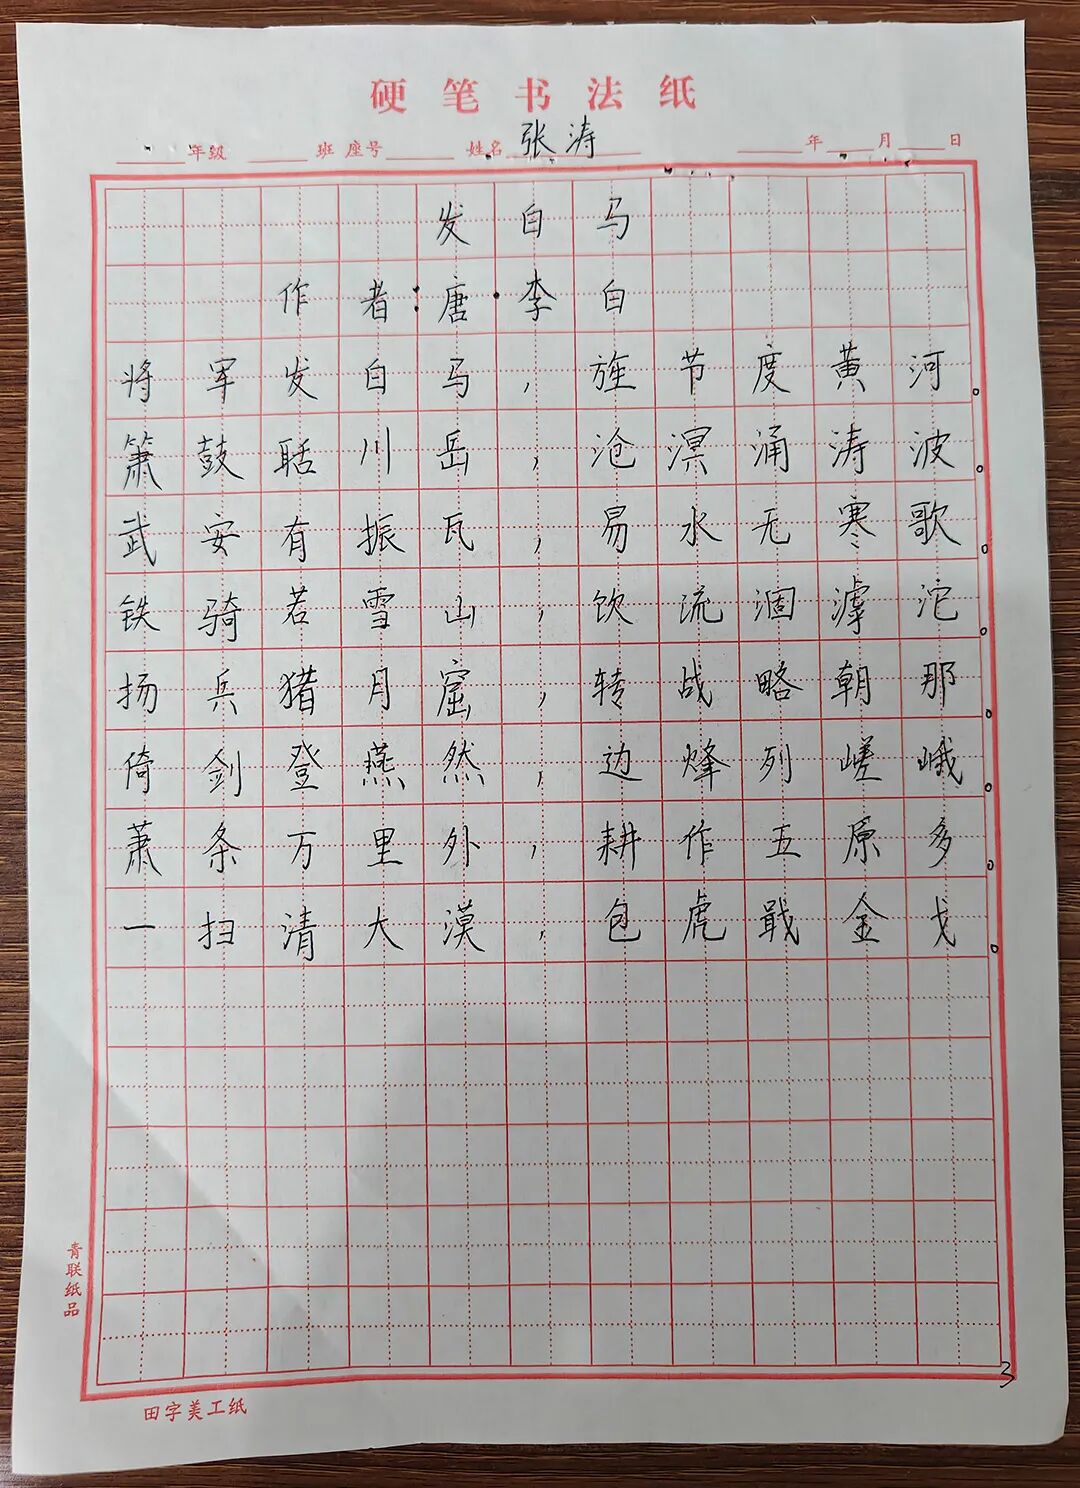 硬笔书法纸
年级 班 座号 姓名 张涛 年 月 日
发白马
作者:唐·李白
将军发白马,旌节度黄河。
箫鼓聒川岳,沧溟涌涛波。
武安有振瓦,易水无寒歌。
铁骑若雪山,饮流涸滹沱。
扬兵猎月窟,转战略朝那。
倚剑登燕然,边烽列嵯峨。
萧条万里外,耕作五原多。
一扫清大漠,包虎戢金戈。
青联纸品
田字美工纸
3